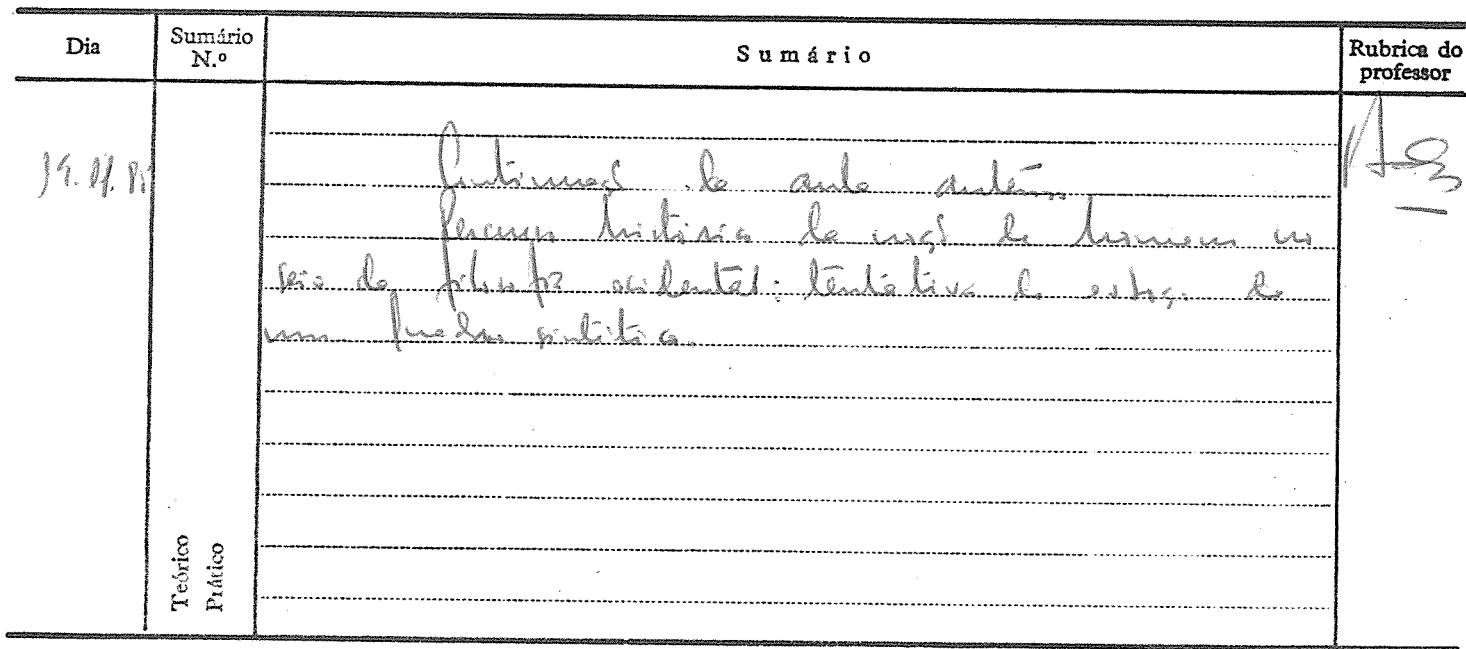 Dia
Sumário N.º
Sumário
Rubrica do professor
Continuação da aula anterior.
Percurso histórico da noção de homem no
seio da filosofia ocidental: tentativa de esboço de
um quadro sintético.
Teórico
Prático